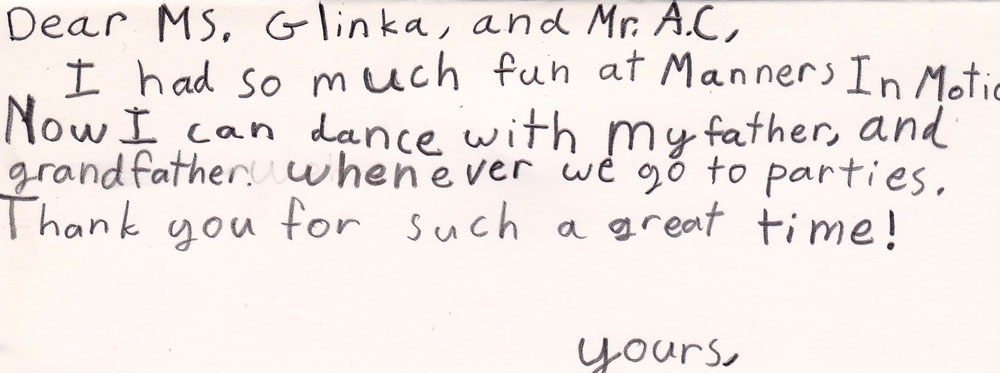 Dear Ms. Glinka, and Mr. A.C,
I had so much fun at Manners In Motio
Now I can dance with my father, and
grandfather. whenever we go to parties.
Thank you for such a great time!
yours,